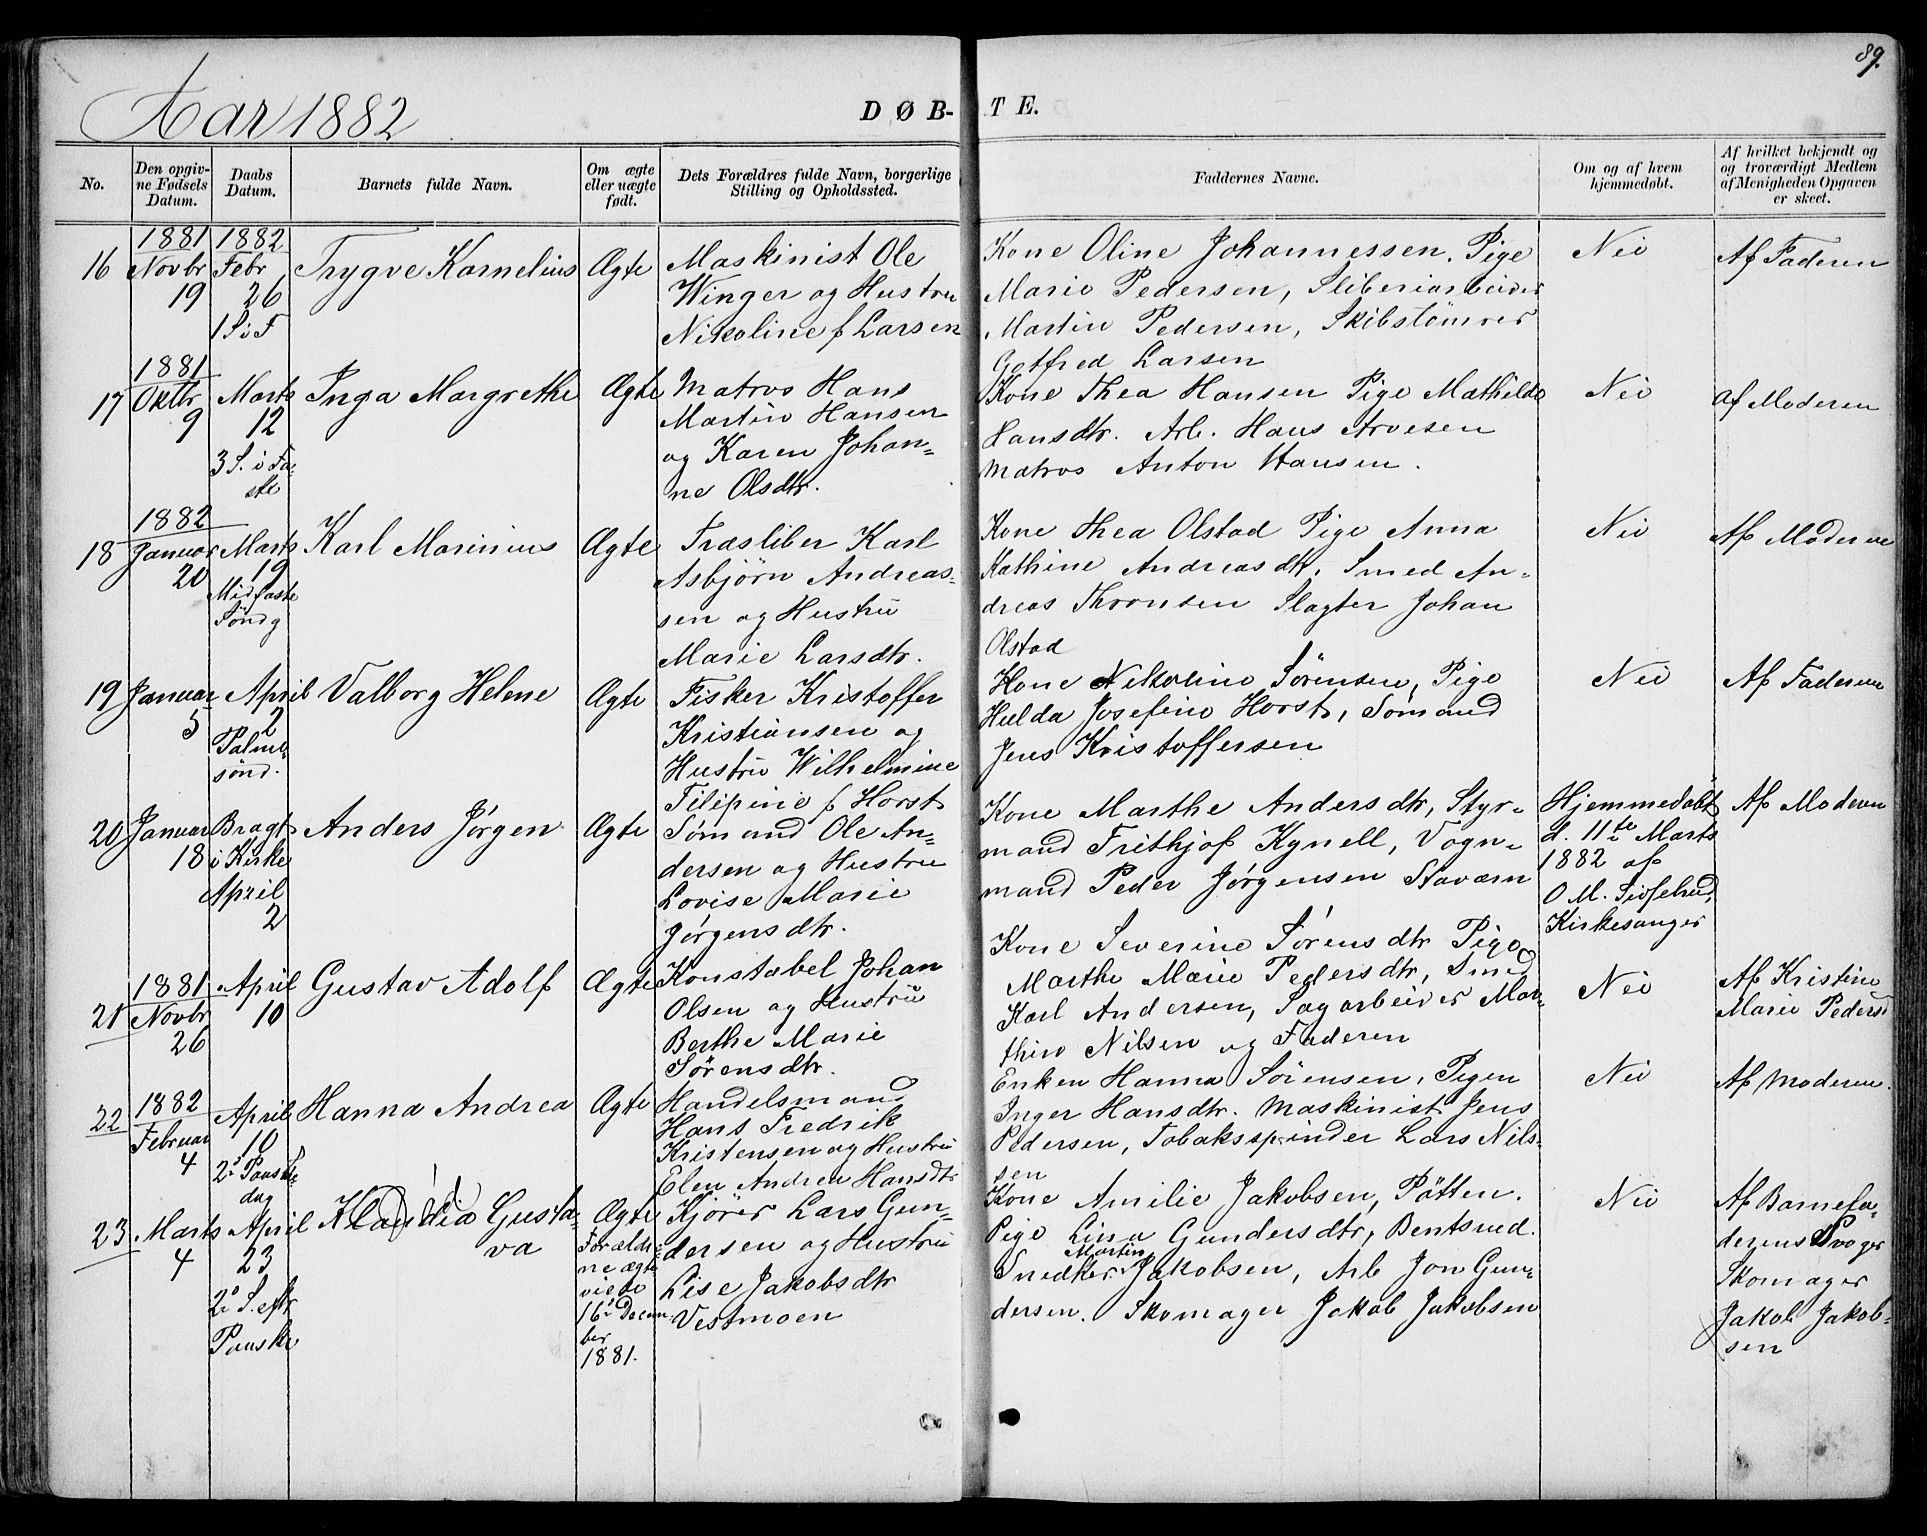 89.
Aar 1882
DØB-TE.
No.
Den opgivne Fødsels Datum.
Daabs Datum.
Barnets fulde Navn.
Om ægte eller uægte født.
Dets Forældres fulde Navn, borgerlige Stilling og Opholdssted.
Faddernes Navne.
Om og af hvem hjemmedøbt.
Af hvilket bekjendt og og troværdigt Medlem af Menigheden Opgaven er skeet.
16
1881
Novbr
19
1882
Febr
26
1 S i F
Trygve Kornelius
Ægte
Maskinist Ole
Winger og Hustru
Nikoline f Larsen
Kone Oline Johannessen, Pige
Marie Pedersen, Sliberiarbeider
Martin Pedersen, Skibstømrer
Gotfred Larsen
Nei
Af Faderen
17
1881
Oktbr
9
Marts
12
3 S. i Fa-
ste
Inga Margrethe
Ægte
Matros Hans
Martin Hansen
og Karen Johan-
ne Olsdtr.
Kone Thea Hansen Pige Mathilde
Hansdtr. Arb. Hans Arvesen
Matros Anton Hansen.
Nei
Af Moderen
18
1882
Januar
20
Marts
19
Midfaste
Søndg
Karl Marinius
Ægte
Træsliber Karl
Asbjørn Andreas-
sen og Hustru
Marie Larsdtr.
Kone Thea Olstad Pige Anna
Kathine Andreasdtr, Smed An-
dreas Thronsen Slagter Johan
Olstad
Nei
Af Moderen
19
Januar
5
April
2
Palme-
sønd.
Valborg Helene
Ægte
Fisker Kristoffer
Kristiansen og
Hustru Wilhelmine
Filipine f Horst
Kone Nikoline Sørensen, Pige
Hulda Josefine Horst, Sømand
Jens Kristoffersen
Nei
Af Faderen
20
Januar
18
Bragt
i Kirke
April
2
Anders Jørgen
Ægte
Sømand Ole An-
dersen og Hustru
Lovise Marie
Jørgensdtr.
Kone Marthe Andersdtr, Styr-
mand Frithjof Kynell, Vogn-
mand Peder Jørgensen Staværn
Hjemmedøbt
d. 11te Marts
1882 af
O M.
Kirkesanger
Af Moderen
21
1881
Novbr
26
April
10
Gustav Adolf
Ægte
Konstabel Johan
Olsen og Hustru
Berthe Marie
Sørensdtr.
Kone Severine Sørensdtr Pige
Marthe Marie Pedersdtr, Smed
Karl Andersen, Sagarbeider Mar-
thin Nilsen og Faderen
Nei
Af Kristine
Marie Pedersd
22
1882
Februar
4
April
10
2 Paaske
dag
Hanna Andrea
Ægte
Handelsmand
Hans Fredrik
Kristensen og Hustru
Elen Andrea Hansdtr
Enken Hanna Sørensen, Pigen
Inger Hansdtr. Maskinist Jens
Pedersen, Tobaksspinder Lars Nils-
sen
Nei
Af Moderen.
23
Marts
4
April
23
2 S. eftr
Paaske
Klaudia Gusta-
va
Ægte
Foræld-
ne ægte
viede
16 Decem
ber
1881.
Kjører Lars Gun-
dersen og Hustru
Lise Jakobsdtr
Vestmoen
Kone Amilie Jakobsen, Pøtten.
Pige Lina Gundersdtr, Bentsrud.
Snedker Martin Jakobsen, Arb Jon Gun-
dersen. Skomager Jakob Jakobsen
Nei
Af Barnefa-
derens Svoger
Skomager
Jakob Jakob-
sen